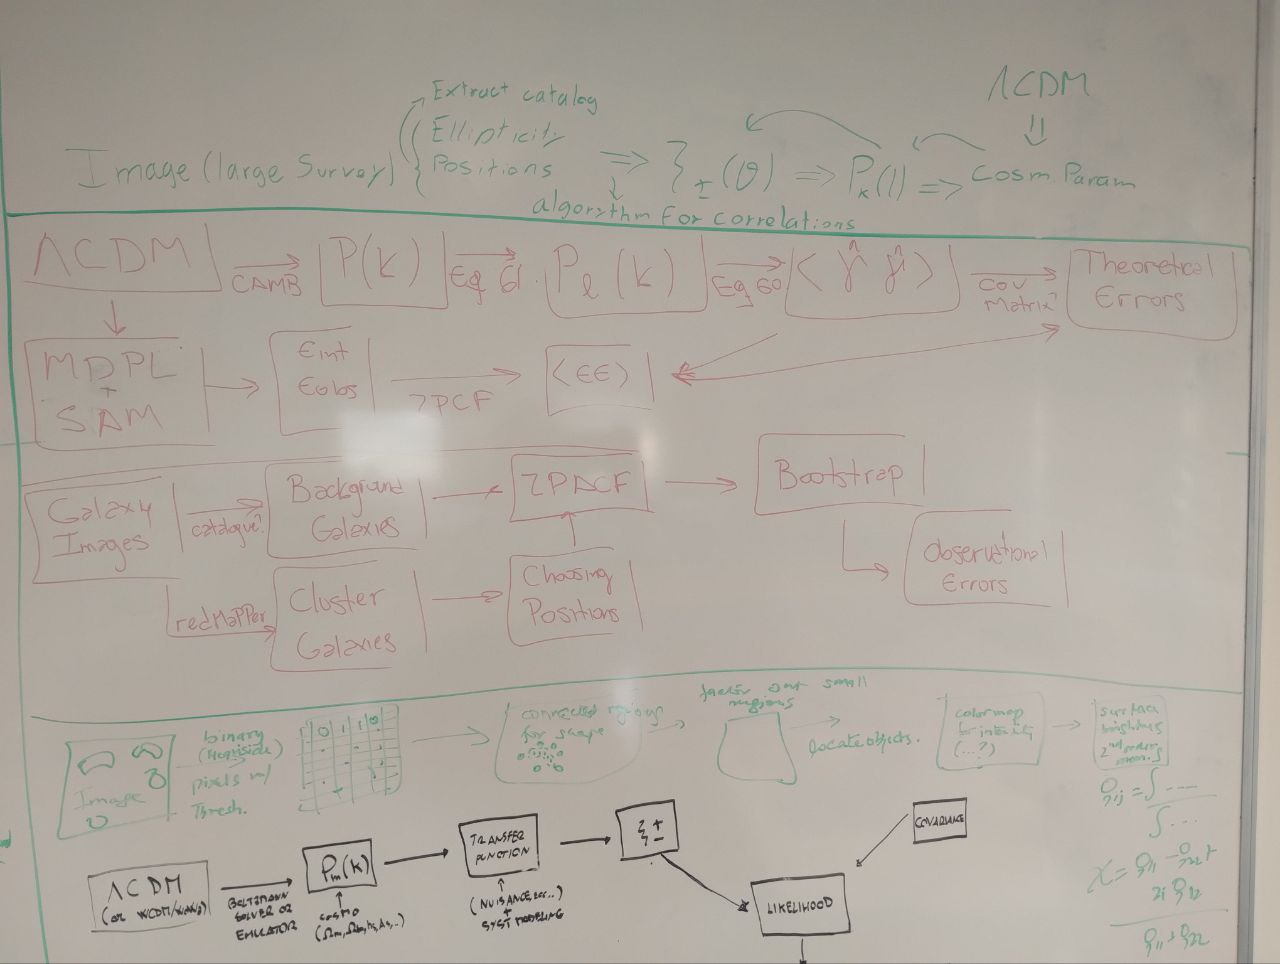 ΛCDM
Extract catalog
Ellipticity
Image (large Survey) { Positions => ξ±(θ) => Pκ(l) => Cosm. Param
algorithm for correlations
ΛCDM CAMB P(k) Eq 61. Pℓ(k) Eq 60 <γ̂ γ̂> Cov Matrix Theoretical Errors
MDPL
+
SAM
Eint
Eobs
2PCF
<ϵϵ>
Galaxy
Images
catalogue
Background
Galaxies
2PACF
Bootstrap
Observational
Errors
redMaPPer
Cluster
Galaxies
Choosing
Positions
Image
binary
(Heaviside)
pixels w/
Thresh.
1 0 1 1 0
connected regions
for shape
factor out small
regions
locate objects.
color map
for intensity
(...?)
surface
brightness
2nd order
mom.
Qij = ∫ ....
∫ ...
χ = Q11 - Q22 +
2i Q12
Q11 + Q22
ΛCDM
BOLTZMANN
SOLVER OR
EMULATOR
Pm(k)
COSMO
TRANSFER
FUNCTION
(NUISANCE, ...)
+
SYST MODELING
ξ±
COVARIANCE
LIKELIHOOD